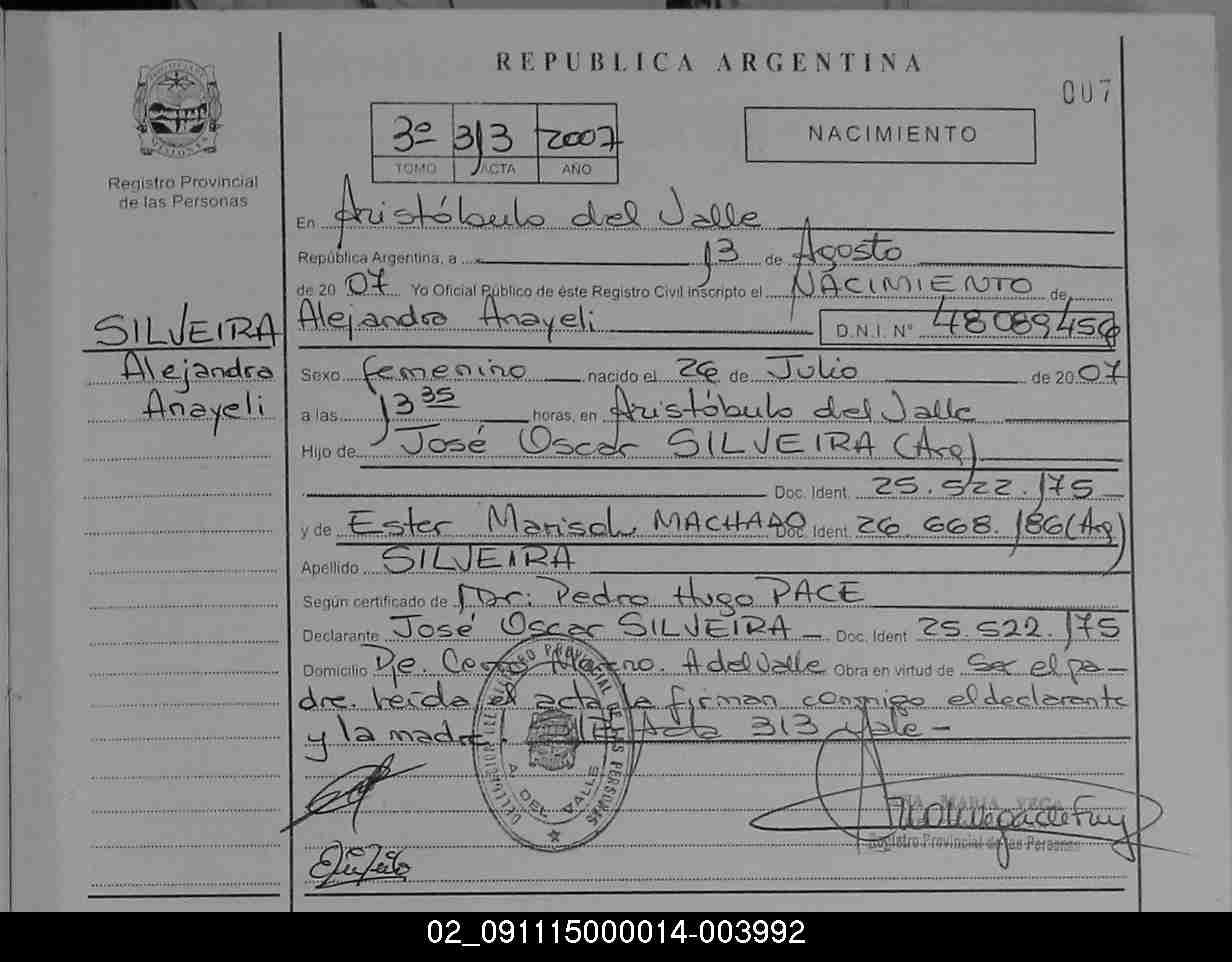 REPUBLICA ARGENTINA
007
3º 313 2007
TOMO ACTA AÑO
NACIMIENTO
MISIONES
Registro Provincial
de las Personas
SILVEIRA
Alejandra
Anayeli
En Aristóbulo del Valle
República Argentina, a 13 de Agosto
de 20 07 Yo Oficial Público de éste Registro Civil inscripto el NACIMIENTO de
Alejandra Anayeli D.N.I. Nº 48089456
Sexo femenino nacido el 26 de Julio de 20 07
a las 13 35 horas, en Aristóbulo del Valle
Hijo de José Oscar SILVEIRA (Arg)
Doc. Ident. 25.522.175
y de Ester Marisol MACHADO Doc. Ident. 26.668.186 (Arg)
Apellido SILVEIRA
Según certificado de Dr: Pedro Hugo PACE
Declarante José Oscar SILVEIRA Doc. Ident 25.522.175
Domicilio Moreno. A del Valle Obra en virtud de Ser el pa-
dre. leída el acta la firman conmigo el declarante
y la madre. Acta 313 vale-
REGISTRO PROVINCIAL DE LAS PERSONAS
DELEGACION
A. DEL VALLE
MARIA VEGA
Registro Provincial de las Personas
02_091115000014-003992